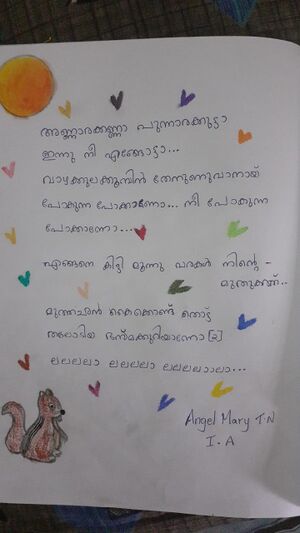 അണ്ണാരക്കണ്ണാ പുന്നാരക്കുട്ടാ
ഇന്നു നീ എങ്ങോട്ടാ...
വാഴക്കുലക്കൂമ്പിൻ തേനുണ്ണുവാനായ്
പോകുന്ന പോക്കാണോ... നീ പോകുന്ന
പോക്കാന്നോ...
എങ്ങനെ കിട്ടി മൂന്നു വരകൾ നിന്റെ -
മുതുകത്ത്..
മുത്തച്ഛൻ കൈക്കൊണ്ട് തൊട്ട്
തലോടിയ ഭസ്മക്കുറിയാന്നോ [2]
ലലലലാ ലലലലാ ലലലലാാലാ...
Angel Mary T.N
I-A